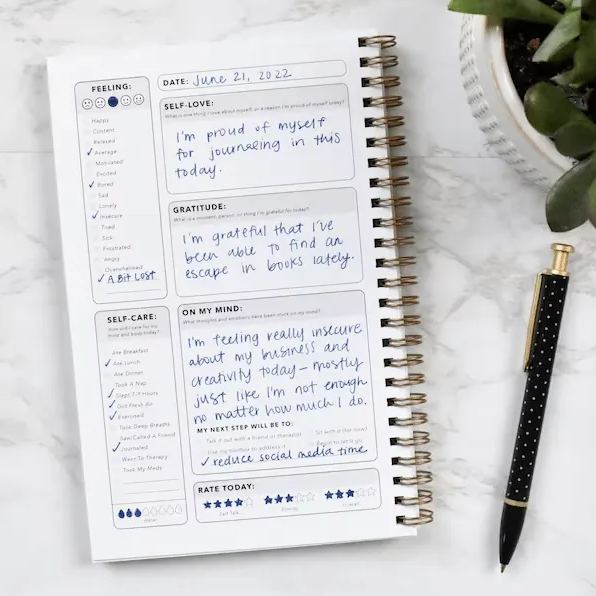 FEELING:
Happy
Content
Relaxed
✓ Average
Motivated
Excited
✓ Bored
Sad
Lonely
✓ Insecure
Tired
Sick
Frustrated
Angry
Overwhelmed
✓ A Bit Lost
SELF-CARE:
How will I care for my
mind and body today?
Ate Breakfast
✓ Ate Lunch
Ate Dinner
Took A Nap
✓ Slept 7-9 Hours
✓ Got Fresh Air
✓ Exercised
Took Deep Breaths
Saw/Called A Friend
✓ Journaled
Went To Therapy
Took My Meds
Water
DATE: June 21, 2022
SELF-LOVE:
What is one thing I love about myself, or a reason I'm proud of myself today?
I'm proud of myself
for journaling in this
today.
GRATITUDE:
What is a moment, person, or thing I'm grateful for today?
I'm grateful that I've
been able to find an
escape in books lately.
ON MY MIND:
What thoughts and emotions have been stuck on my mind?
I'm feeling really insecure
about my business and
creativity today – mostly
just like I'm not enough
no matter how much I do.
MY NEXT STEP WILL BE TO:
Talk it out with a friend or therapist
Sit with it (for now)
Begin to let it go
✓ reduce social media time
RATE TODAY:
Self-Talk
Energy
Overall